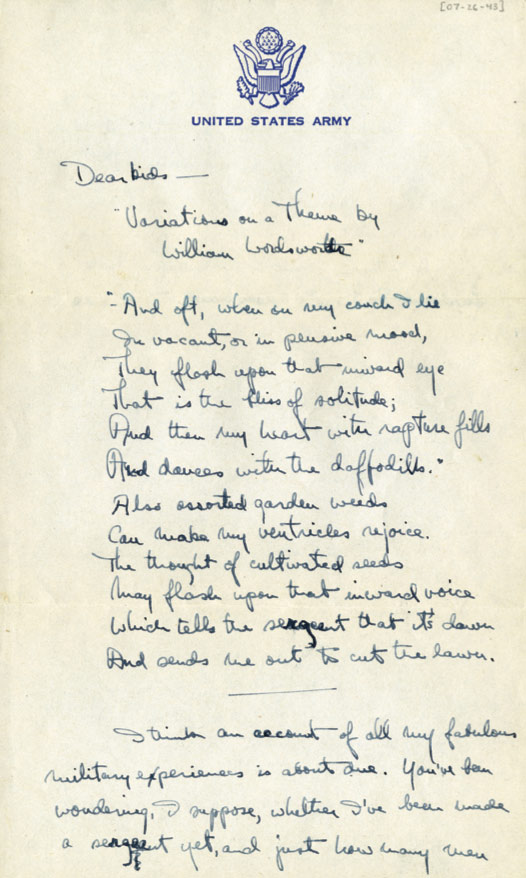 [07-26-43]
UNITED STATES ARMY
Dear kids —
"Variations on a Theme by
William Wordsworth"
"And oft, when on my couch I lie
In vacant, or in pensive mood,
They flash upon that inward eye
That is the bliss of solitude;
And then my heart with rapture fills
And dances with the daffodills."
Also assorted garden weeds
Can make my ventricles rejoice.
The thought of cultivated seeds
May flash upon that inward voice
Which tells the sergeant that it's dawn
And sends me out to cut the lawn.
I think an account of all my fabulous
military experiences is about due. You've been
wondering, I suppose, whether I've been made
a sergeant yet, and just how many men